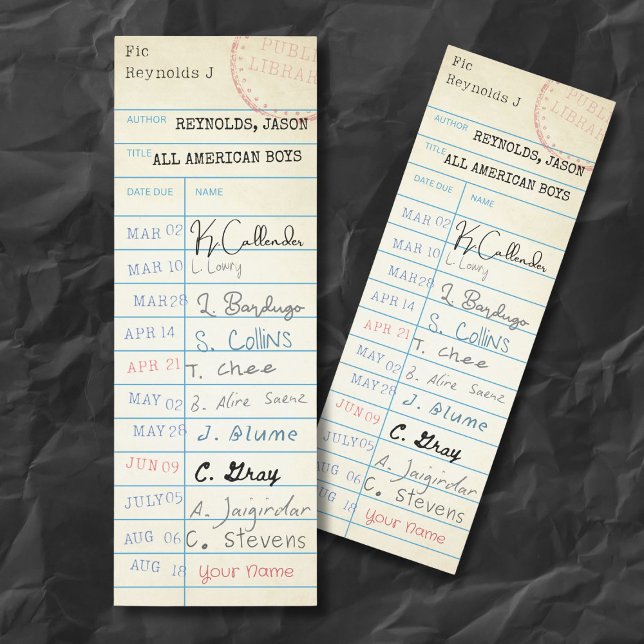 Fic
Reynolds J
PUBLIC
LIBRARY
AUTHOR REYNOLDS, JASON
TITLE ALL AMERICAN BOYS
DATE DUE NAME
MAR 02 K. Callender
MAR 10 L. Lowry
MAR 28 L. Bardugo
APR 14 S. Collins
APR 21 T. Chee
MAY 02 B. Alire Saenz
MAY 28 J. Blume
JUN 09 C. Gray
JULY 05 A. Jaigirdar
AUG 06 C. Stevens
AUG 18 Your Name
Fic
Reynolds J
PUBLIC
LIBRARY
AUTHOR REYNOLDS, JASON
TITLE ALL AMERICAN BOYS
DATE DUE NAME
MAR 02 K. Callender
MAR 10 L. Lowry
MAR 28 L. Bardugo
APR 14 S. Collins
APR 21 T. Chee
MAY 02 B. Alire Saenz
MAY 28 J. Blume
JUN 09 C. Gray
JULY 05 A. Jaigirdar
AUG 06 C. Stevens
AUG 18 Your Name